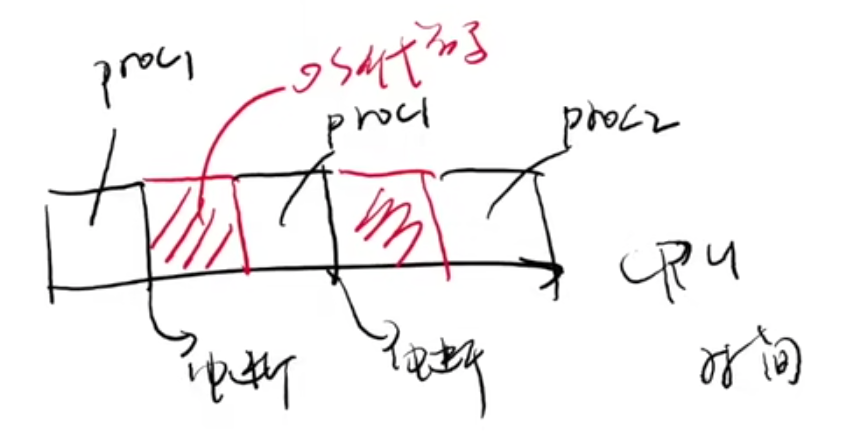 proc1
OS代码
proc1
proc2
CPU
中断
中断
时间